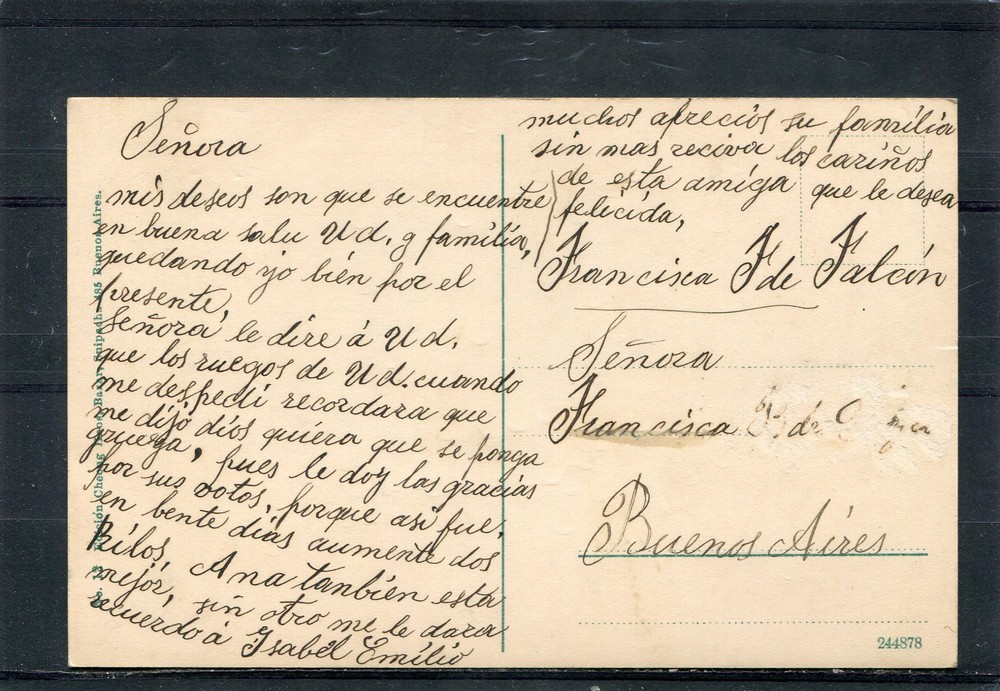 Señora
mis deseos son que se encuentre
en buena salu Ud. y familia,
quedando yo bién por el
presente,
Señora le dire á Ud.
que los ruegos de Ud. cuando
me despedi recordara que
me dijó dios quiera que se ponga
gruega, pues le doy las gracias
por sus votos, porque asi fue,
en bente dias aumente dos
Kilos, Ana tanbién esta
mejór, sin otro me le dara
recuerdo á Isabél Emilio
muchos aprecios su familia
sin mas reciva los cariños
de esta amiga que le desea
felicida,
Francisca F de Falcón
Señora
Francisca P. de
Buenos Aíres
Edición Cheong Bazar, Suipacha 185 Buenos Aires.
244878